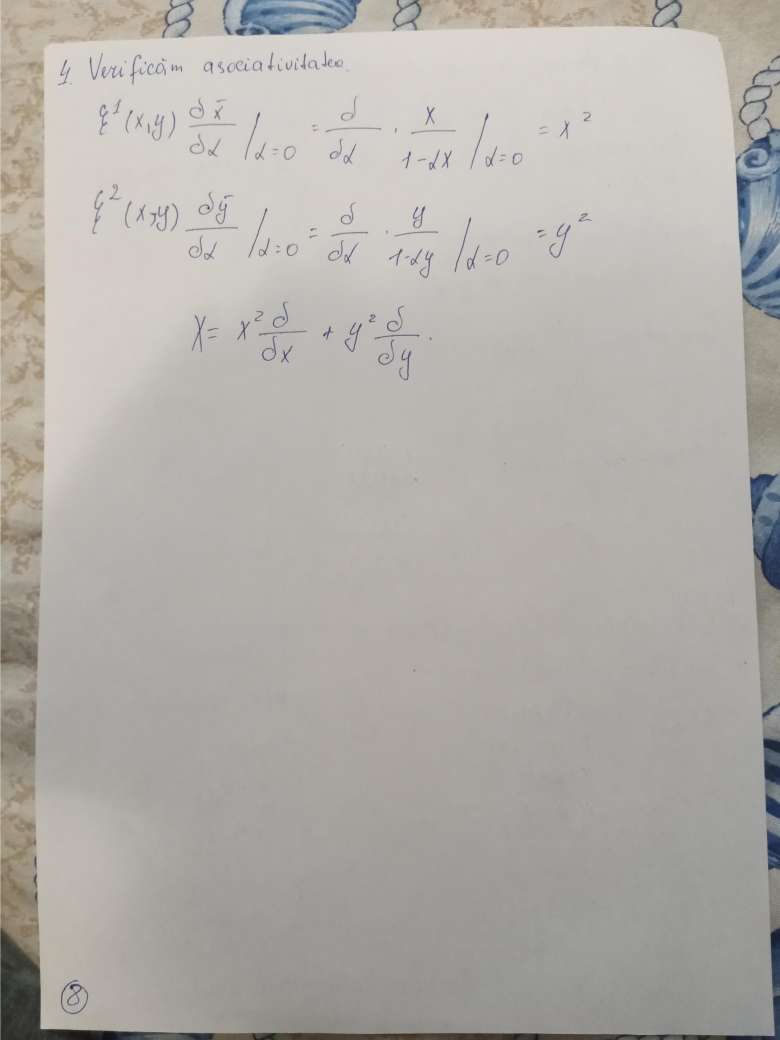 4. Verificăm asociativitatea.
ξ¹(x,y) δx̄/δα |α=0 = δ/δα · x/(1-αx) |α=0 = x²
ξ²(x,y) δȳ/δα |α=0 = δ/δα · y/(1-αy) |α=0 = y²
X = x² δ/δx + y² δ/δy.
8